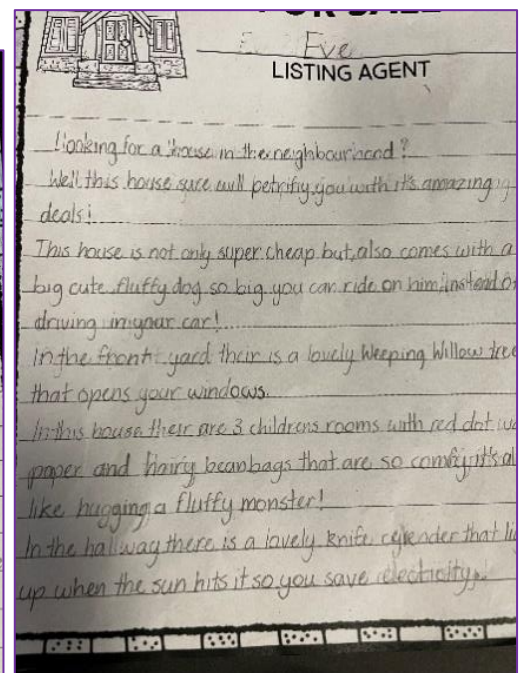 FOR SALE
Eve
LISTING AGENT
Looking for a house in the neighbourhood?
Well this house sure will petrify you with it's amazing
deals!
This house is not only super cheap but, also comes with a
big cute fluffy dog so big you can ride on him, instead
driving in your car!
In the front yard their is a lovely Weeping Willow tree
that opens your windows.
In this house their are 3 childrens rooms with red dot
paper and hairy beanbags that are so comfy it's
like hugging a fluffy monster!
In the hallway there is a lovely knife that
up when the sun hits it so you save electricity.